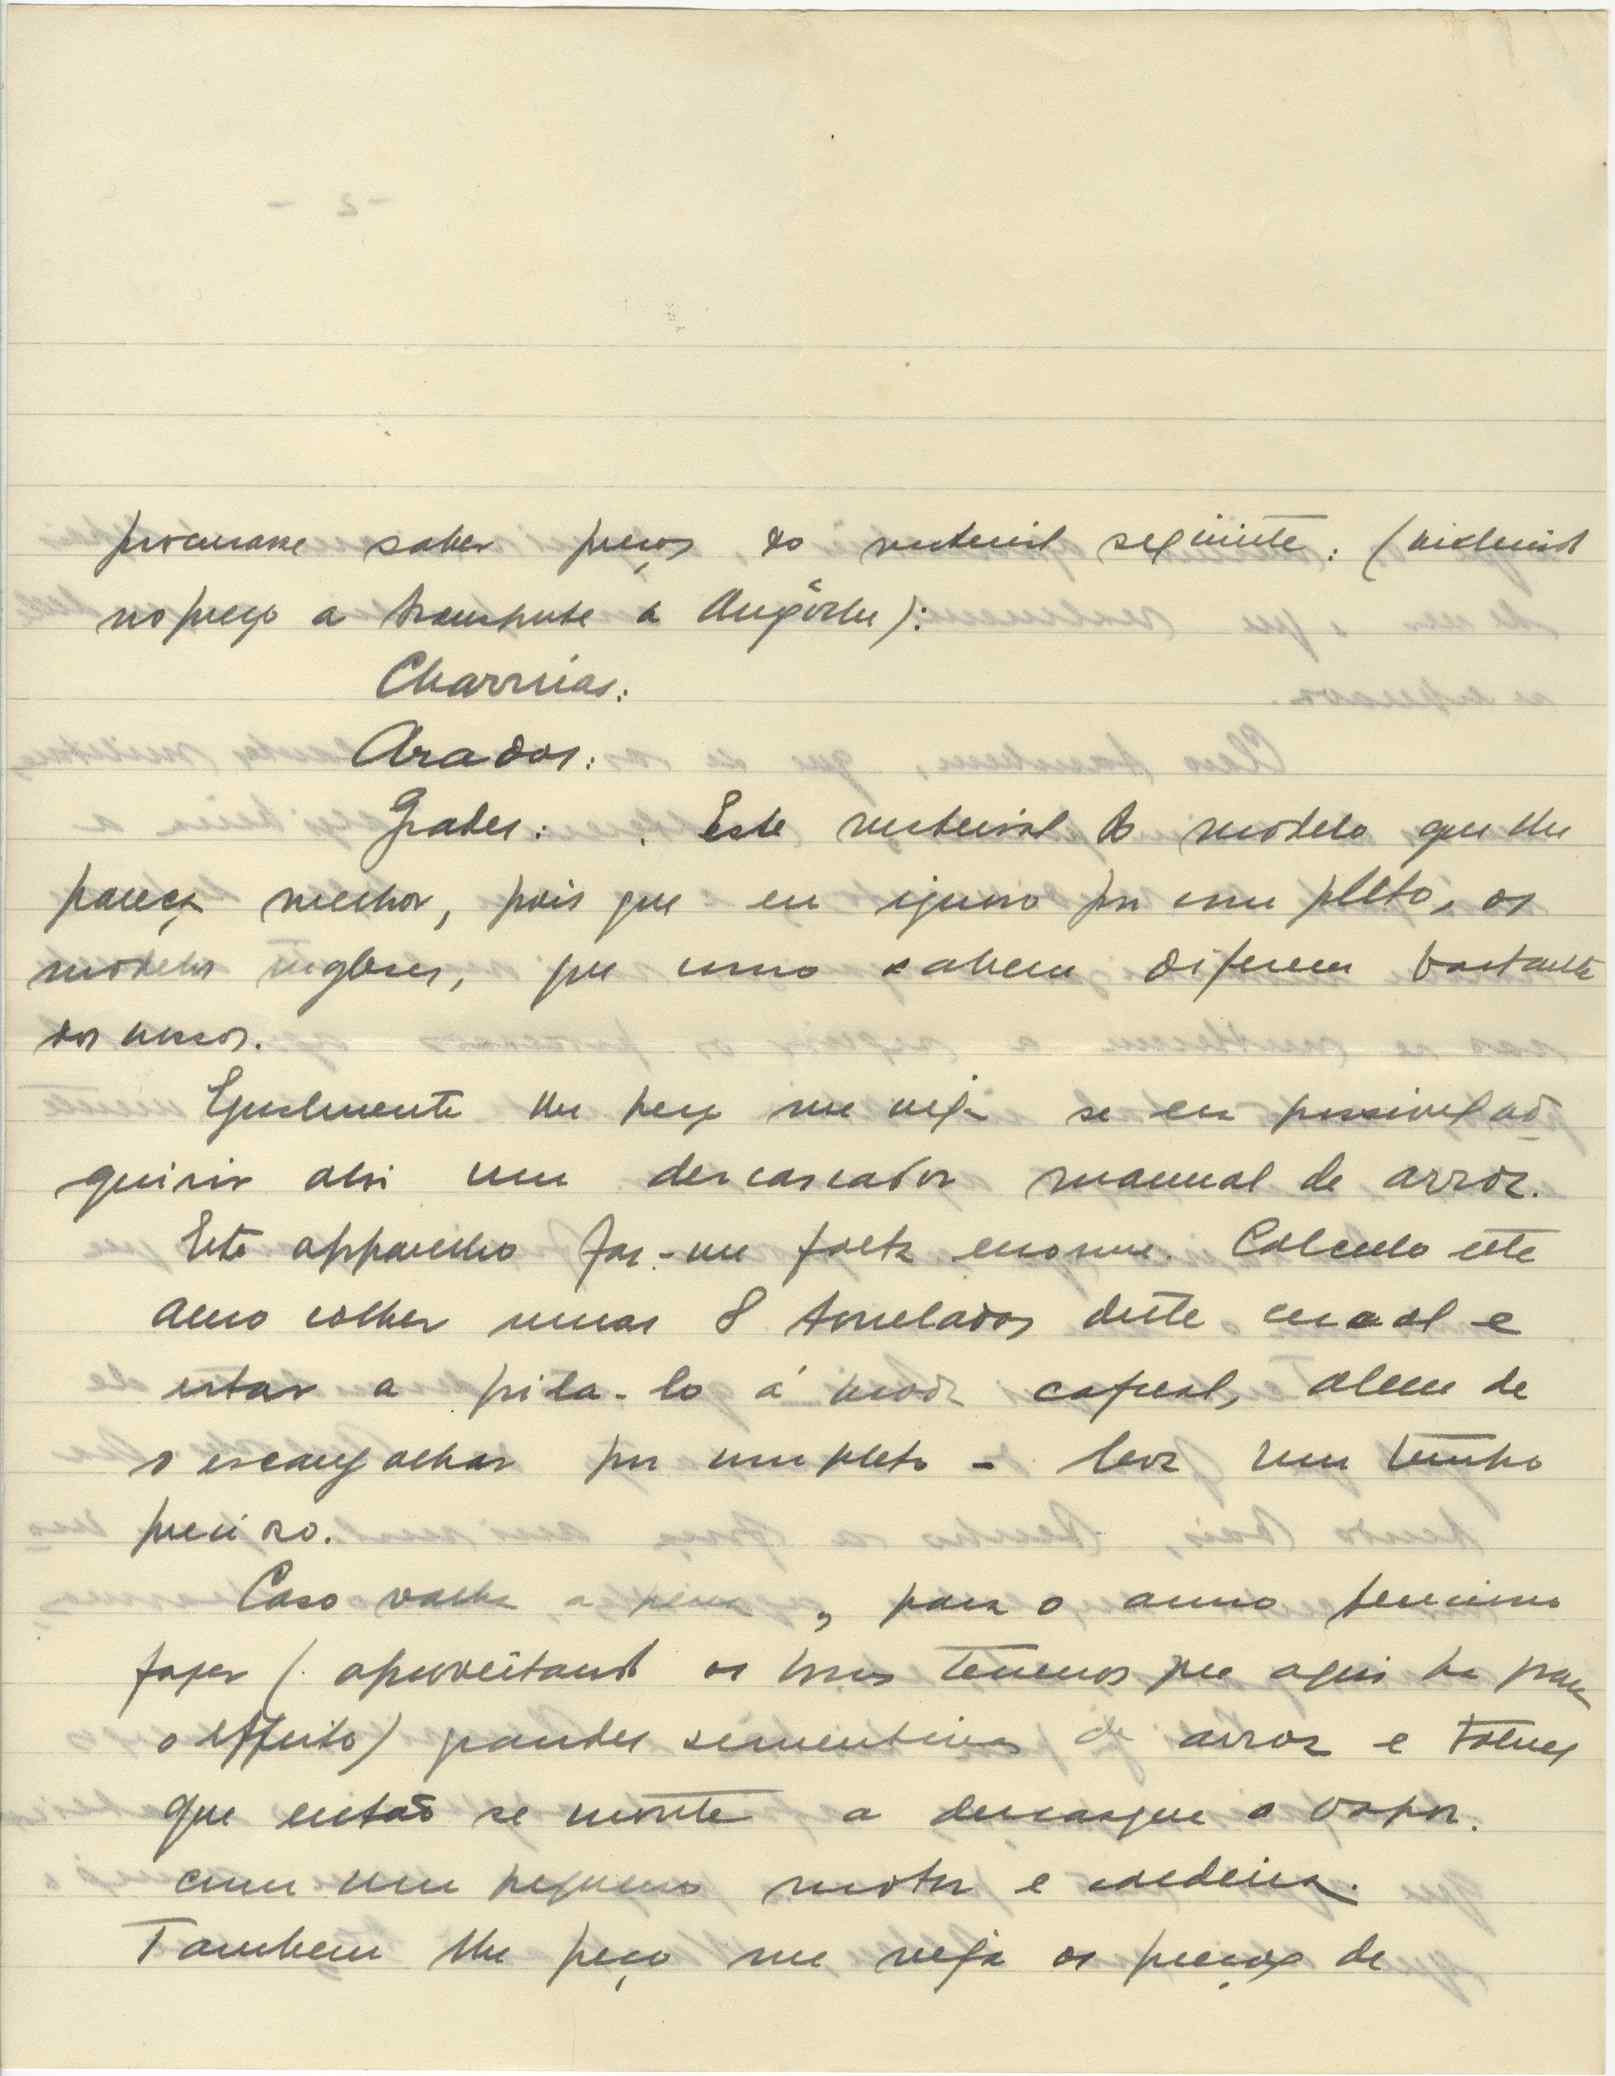 procurasse saber preços do material seguinte: (incluindo
no preço o transporte a Angôche):
Charruas:
Arados:
Grades: . Este material do modelo que lhe
pareça melhor, pois que eu ignoro por completo, os
modelos ingleses, que como sabem diferem bastante
dos nossos.
Egualmente lhe peço me veja se era possivel ad
quirir ahi um descascador manual de arroz.
Este apparelho faz-me falta enorme. Calculo este
anno colher umas 8 toneladas deste cereal e
estar a pila-lo á moda cafreal, alem de
o escangalhar por completo - leva um tempo
precioso.
Caso valha a pena, para o anno tenciono
fazer (aproveitando os bons terrenos que aqui ha para
o effeito) grandes sementeiras de arroz e talvez
que então se monte a descasque a vapor.
com um pequeno motor e caldeira.
Tambem lhe peço me veja os preços de